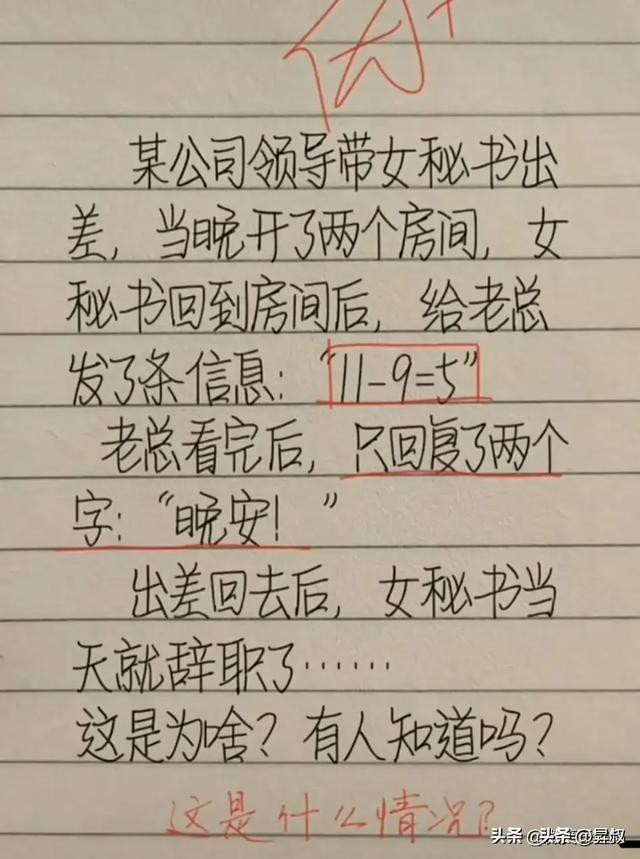 优+
某公司领导带女秘书出
差，当晚开了两个房间，女
秘书回到房间后，给老总
发了条信息：“11-9=5”
老总看完后，只回复了两个
字：“晚安！”
出差回去后，女秘书当
天就辞职了……
这是为啥？有人知道吗？
这是什么情况？
头条 @头条@昙叔